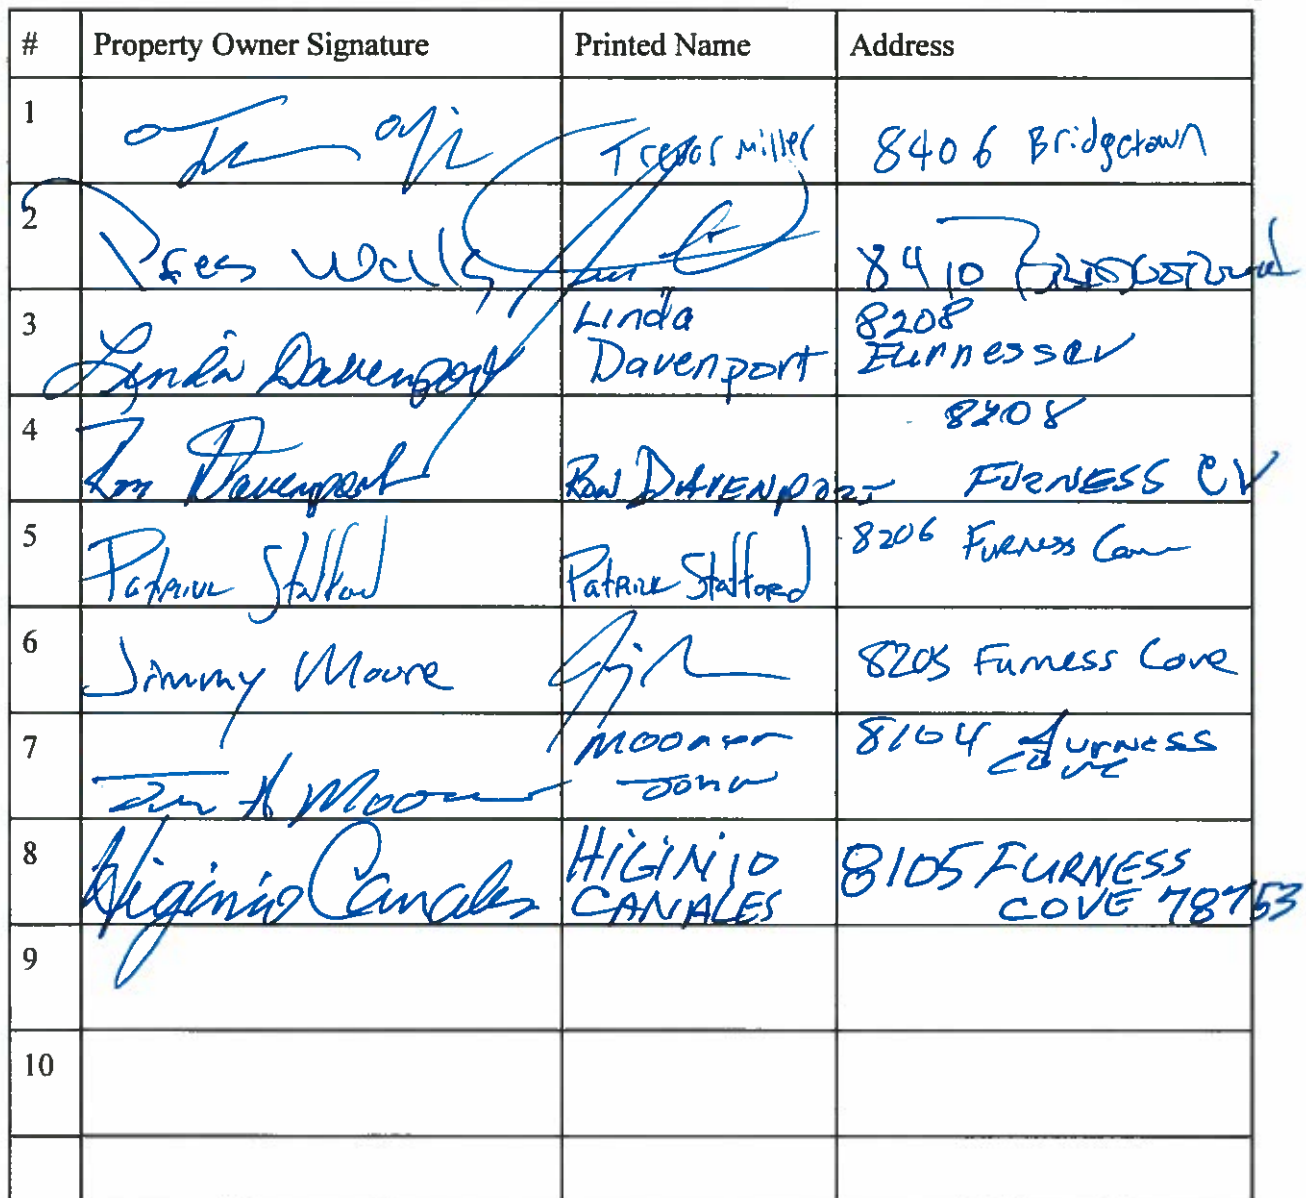 # Property Owner Signature Printed Name Address
1 Trevor Miller 8406 Bridgetown
2 Walls 8410
3 Linda Davenport Linda Davenport 8208 Furness CV
4 Ron Davenport RON DAVENPORT 8208 FURNESS CV
5 Patrick Stafford Patrick Stafford 8206 Furness Cove
6 Jimmy Moore 8205 Furness Cove
7 John 8104 Furness Cove
8 Higinio Canales HIGINIO CANALES 8105 FURNESS COVE 78753
9
10